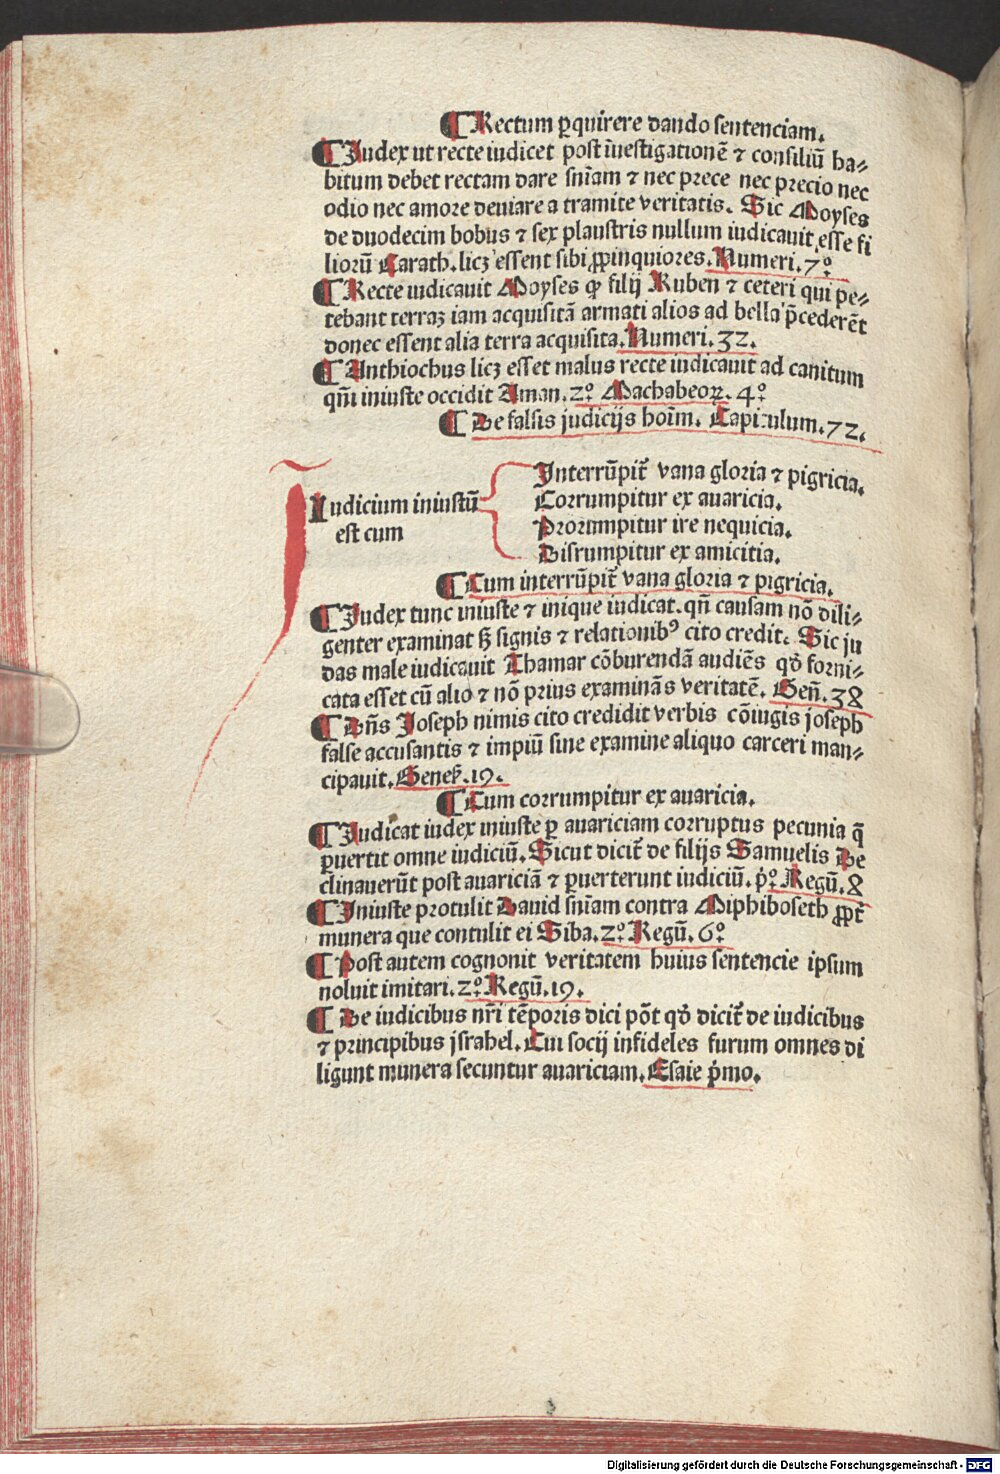 ¶Rectum ꝑquirere dando sentenciam.
¶Iudex ut recte iudicet post īuestigationē ⁊ consiliū ha⸗
bitum debet rectam dare sniam ⁊ nec prece nec precio nec
odio nec amore deuiare a tramite veritatis. Sic Moyses
de duodecim bobus ⁊ sex plaustris nullum iudicauit esse fi
liorū Carath. licꝫ essent sibi ꝓpinquiores. Numeri. 7º
¶Recte iudicauit Moyses ꝙ filij Ruben ⁊ ceteri qui pe⸗
tebant terraꝫ iam acquisitā armati alios ad bella p̄cederēt
donec essent alia terra acquisita. Numeri. 32.
¶Anthiochus licꝫ esset malus recte iudicauit ad canitum
qn̄i iniuste occidit Aman. 2º Machabeoꝝ. 4º
¶De falsis judicijs hoīm. Capitulum. 72.
Iudicium iniustū
est cum
Interrūpit᷑ vana gloria ⁊ pigricia.
Corrumpitur ex auaricia.
Prorumpitur ire nequicia.
Disrumpitur ex amicitia.
¶Cum interrūpit᷑ vana gloria ⁊ pigricia.
¶Judex tunc iniuste ⁊ inique iudicat. qn̄ causam nō dili⸗
genter examinat sꝫ signis ⁊ relationibꝰ cito credit. Sic ju
das male iudicauit Thamar cōburendā audiēs qđ forni⸗
cata esset cū alio ⁊ nō prius examinās veritatē. Gen̄. 38
¶Dn̄s Joseph nimis cito credidit verbis cōiugis joseph
false accusantis ⁊ impiū sine examine aliquo carceri man⸗
cipauit. Genes̄. 19.
¶Cum corrumpitur ex auaricia.
¶Judicat iudex iniuste ꝑ auariciam corruptus pecunia q̄
ꝑuertit omne iudiciū. Sicut dicit᷑ de filijs Samuelis De
clinauerūt post auariciā ⁊ ꝑuerterunt iudiciū. pº. Regū. 8
¶Iniuste protulit Dauid sn̄iam contra Miphiboseth ꝓpt᷑
munera que contulit ei Siba. 2º. Regū. 6º
¶Post autem cognouit veritatem huius sentencie ipsum
noluit imitari. 2º Regū. 19.
¶De iudicibus nr̄i tēporis dici pōt qđ dicit᷑ de iudicibus
⁊ principibus jsrahel. Cui socij infideles furum omnes di
ligunt munera secuntur auariciam. Esaie p̄mo.
Digitalisierung gefördert durch die Deutsche Forschungsgemeinschaft - DFG